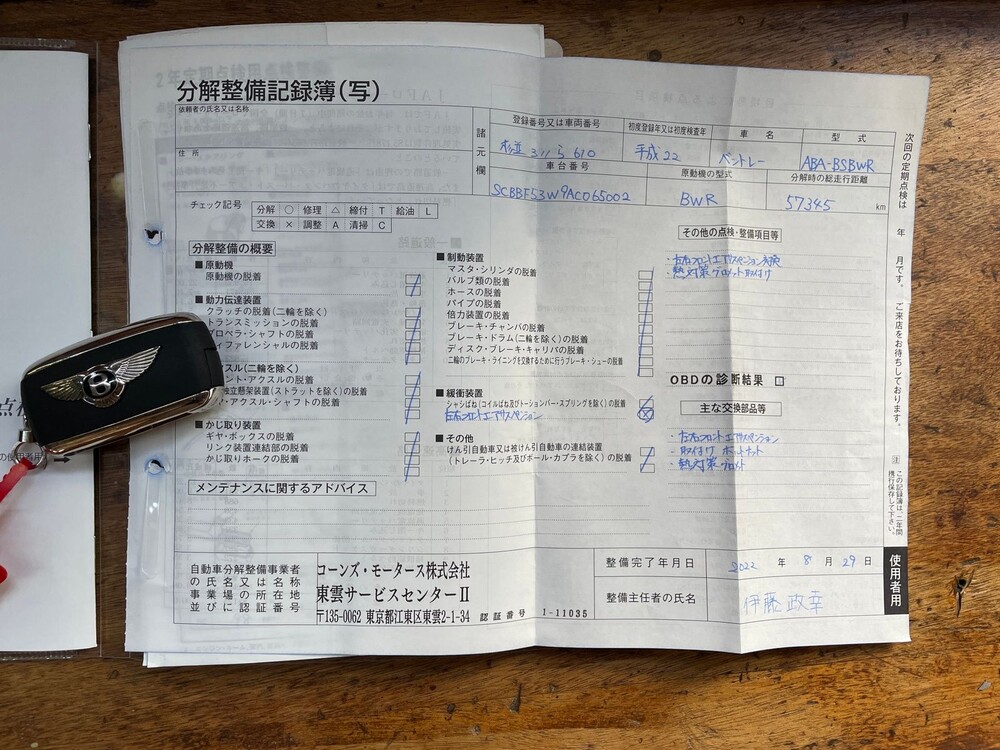 分解整備記録簿(写)
依頼者の氏名又は名称
住所
諸元欄
登録番号又は車両番号
初度登録年又は初度検査年
車名
型式
311 ら 610
平成22
ベントレー
ABA-BSBWR
車台番号
原動機の型式
分解時の総走行距離
SCBBF53W9AC065002
BWR
57345 km
チェック記号
分解 ○ 修理 △ 締付 T 給油 L
交換 × 調整 A 清掃 C
分解整備の概要
■原動機
原動機の脱着
■動力伝達装置
クラッチの脱着(二輪を除く)
トランスミッションの脱着
プロペラ・シャフトの脱着
ィファレンシャルの脱着
スル(二輪を除く)
ント・アクスルの脱着
独立懸架装置(ストラットを除く)の脱着
ヤ・アクスル・シャフトの脱着
■かじ取り装置
ギヤ・ボックスの脱着
リンク装置連結部の脱着
かじ取りホークの脱着
■制動装置
マスタ・シリンダの脱着
バルブ類の脱着
ホースの脱着
パイプの脱着
倍力装置の脱着
ブレーキ・チャンバの脱着
ブレーキ・ドラム(二輪を除く)の脱着
ディスク・ブレーキ・キャリパの脱着
二輪のブレーキ・ライニングを交換するために行うブレーキ・シューの脱着
■緩衝装置
シャシばね(コイルばね及びトーションバー・スプリングを除く)の脱着
左右フロントエアサスペンション
■その他
けん引自動車又は被けん引自動車の連結装置
(トレーラ・ヒッチ及びボール・カプラを除く)の脱着
その他の点検・整備項目等
・左右フロントエアサスペンション交換
・熱対策グロメット取付け
OBDの診断結果
主な交換部品等
・左右フロントエアサスペンション
・取付け ナット
・熱対策
メンテナンスに関するアドバイス
自動車分解整備事業者
の氏名又は名称
事業場の所在地
並びに認証番号
コーンズ・モータース株式会社
東雲サービスセンターⅡ
〒135-0062 東京都江東区東雲2-1-34
認証番号 1-11035
整備完了年月日
2022 年 8 月 29 日
整備主任者の氏名
伊藤政幸
次回の定期点検は 年 月です。ご来店をお待ちしております。
この記録簿は、二年間携行保存して下さい。
使用者用
B